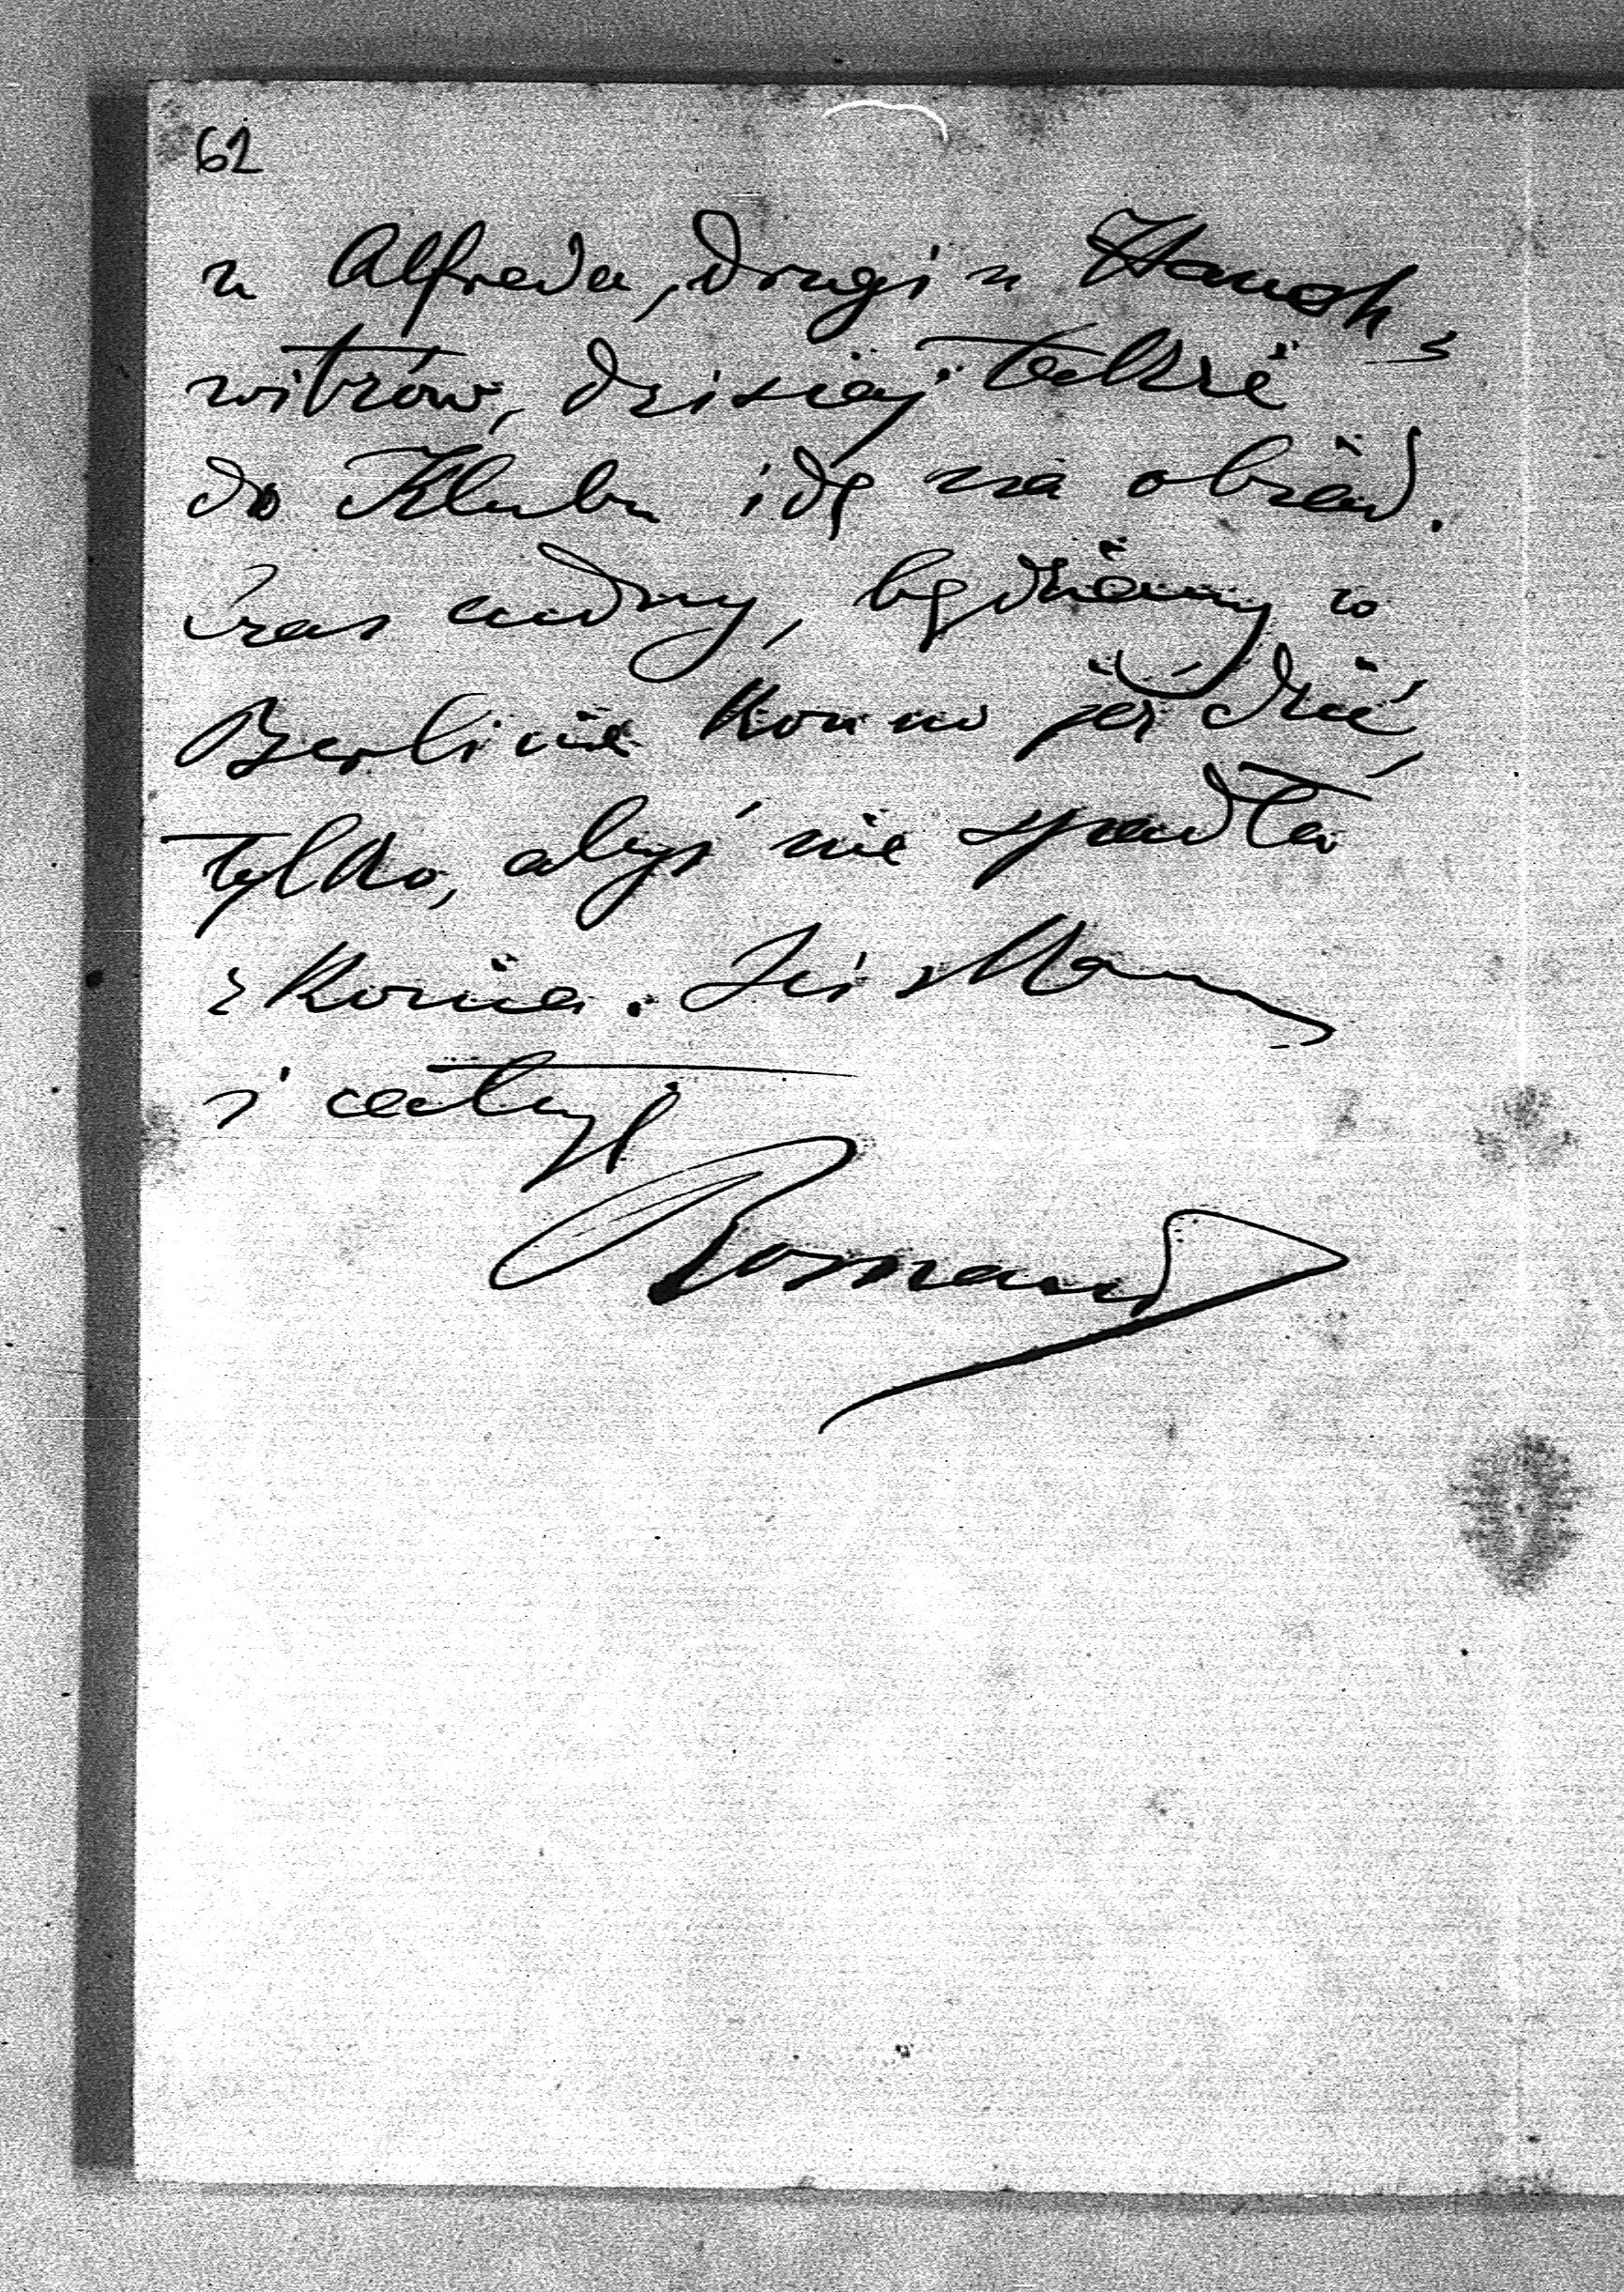 62
u Alfreda, drugi u
witzów, dzisiaj także
do Klubu idę na obiad.
Czas cudny, będziemy w
Berlinie konno jeździć,
tylko, abyś nie spadła
z konia. Ściskam
i całuję
Roman